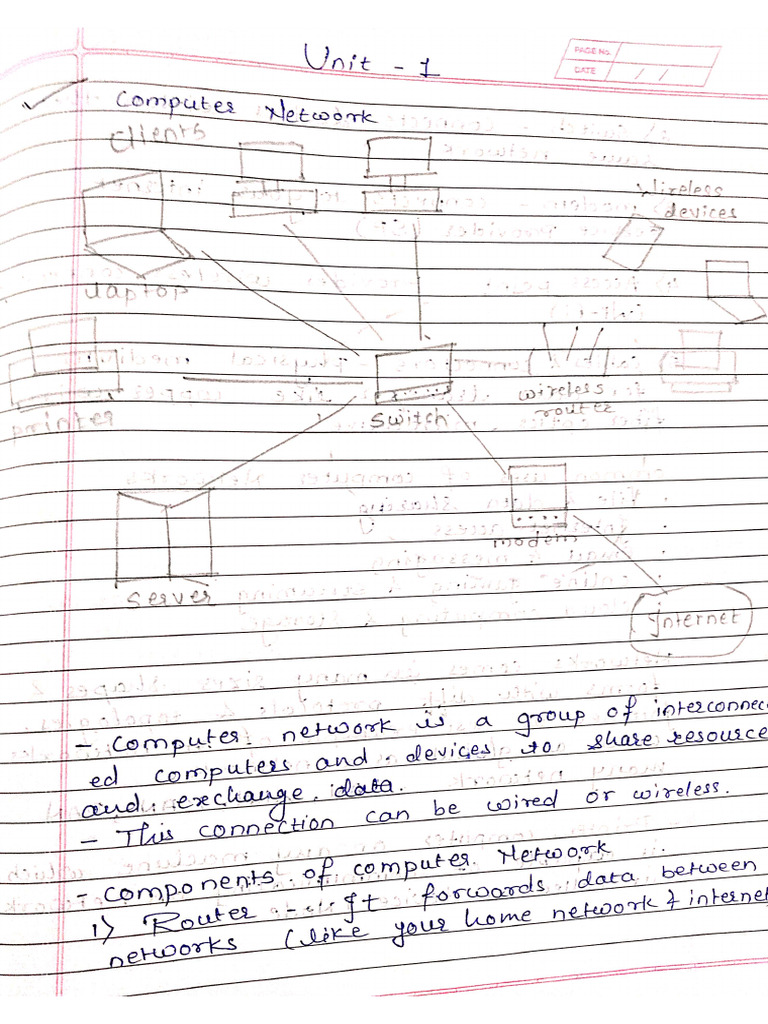 Unit - 1
PAGE No.
DATE / /
Computer Network
Clients
Wireless
devices
Laptop
printer
Switch
wireless
router
modem
Server
Internet
- Computer network is a group of interconnec
ed computers and devices to share resource
and exchange data.
- This connection can be wired or wireless.
- Components of computer Network
1) Router - It forwards data between
networks (like your home network & internet